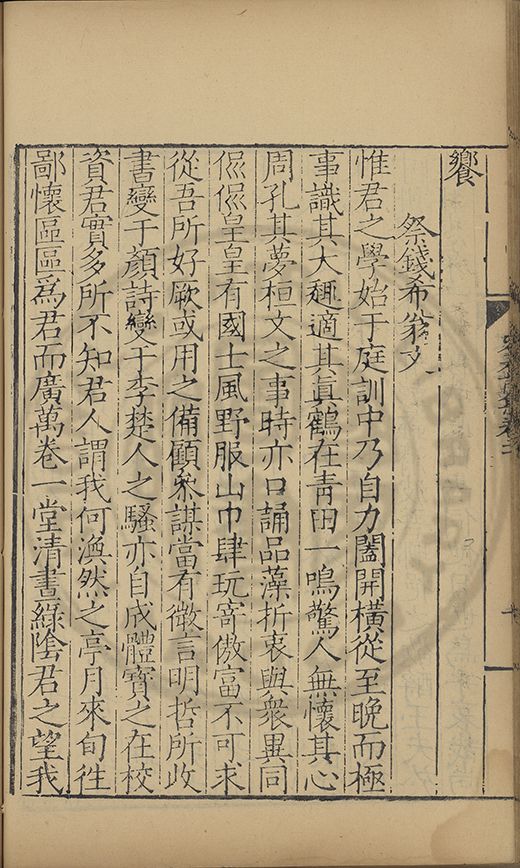 饗
祭錢希翁文
惟君之學始于庭訓中乃自力闔開橫從至晩而極
事識其大趣適其真鶴在青田一鳴驚人無懷其心
周孔其夢桓文之事時亦口誦品藻折衷與衆異同
伾伾皇皇有國士風野服山巾肆玩寄傲富不可求
從吾所好厥或用之備顧叅謀當有徵言明哲所收
書變于顏詩變于李楚人之騷亦自成體寶之在校
資君實多所不知君人謂我何渙然之亭月來旬徃
鄙懷區區爲君而廣萬卷一堂清晝綠陰君之望我